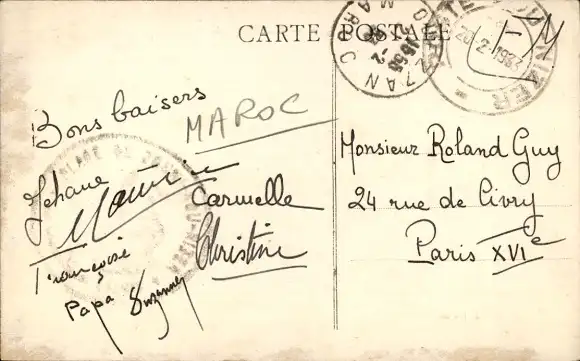 CARTE POSTALE
MAROC
Bons baisers
MAROC
Jehane
Maurice
Carmelle
Christine
Françoise
Papa
Suzanne
Monsieur Roland Guy
24 rue de Civry
Paris XVIe